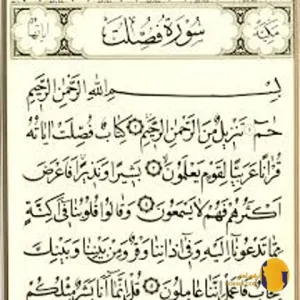 سُورَةُ فُصِّلَتْ
بِسْمِ اللهِ الرَّحْمٰنِ الرَّحِيمِ
حٰمٓ ۝ تَنْزِيلٌ مِنَ الرَّحْمٰنِ الرَّحِيمِ ۝ كِتَابٌ فُصِّلَتْ اٰيَاتُهُ
قُرْاٰنًا عَرَبِيًّا لِقَوْمٍ يَعْلَمُونَ ۝ بَشِيرًا وَنَذِيرًا فَاَعْرَضَ
اَكْثَرُهُمْ فَهُمْ لَا يَسْمَعُونَ ۝ وَقَالُوا قُلُوبُنَا فِي اَكِنَّةٍ
مِمَّا تَدْعُونَا اِلَيْهِ وَفِي اٰذَانِنَا وَقْرٌ وَمِنْ بَيْنِنَا وَبَيْنِكَ
حِجَابٌ فَاعْمَلْ اِنَّنَا عَامِلُونَ ۝ قُلْ اِنَّمَا اَنَا بَشَرٌ مِثْلُكُمْ